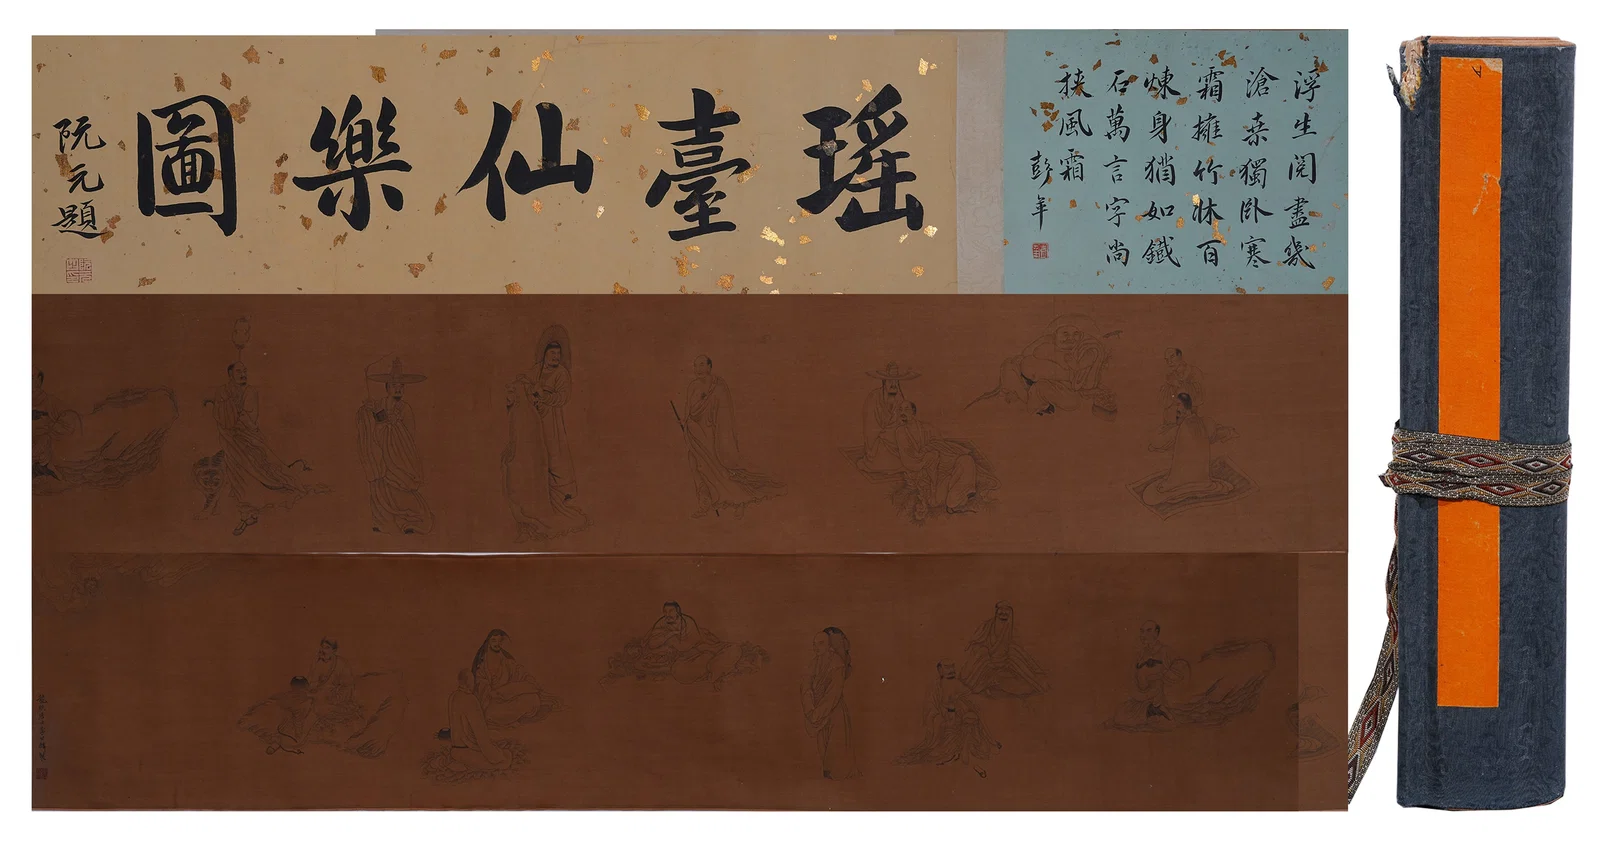 浮生閱盡幾
滄桒獨卧寒
霜擁竹牀百
煉身猶如鐵
石萬言字尚
挾風霜
彭年
瑤臺仙樂圖
阮元題